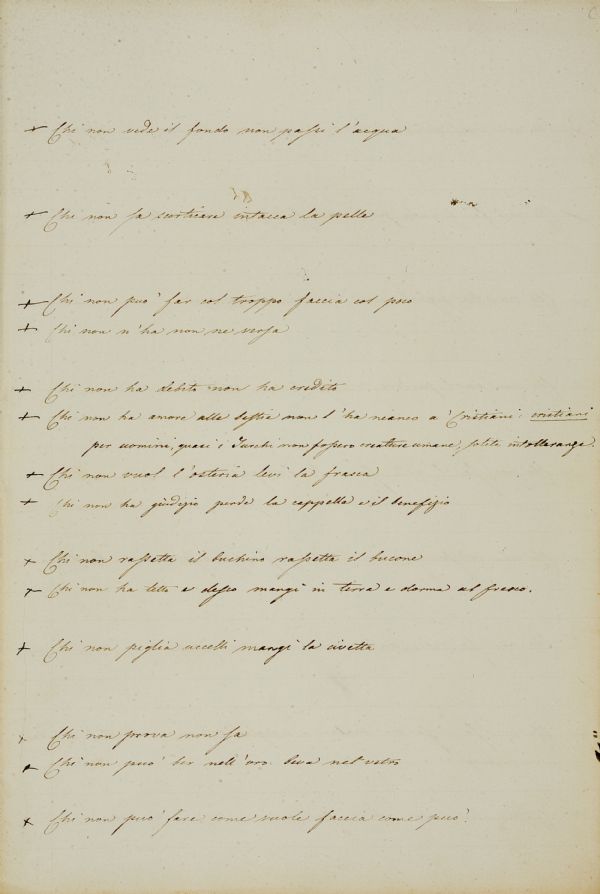 + Chi non vede il fondo non passi l'acqua
+ Chi non sa scorticare intacca la pelle
+ Chi non può far col troppo faccia col poco
+ Chi non n'ha non ne versa
+ Chi non ha debito non ha credito
+ Chi non ha amore alle bestie non l'ha neanco a' Cristiani: cristiani
per uomini, quasi i Turchi non fossero creature umane; solita intolleranza.
+ Chi non vuol l'osteria levi la frasca
+ Chi non ha giudizio perde la cappella e il benefizio
+ Chi non rassetta il buchino rassetta il bucone
+ Chi non ha letto e desco mangi in terra e dorma al fresco.
+ Chi non piglia uccelli mangi la civetta
+ Chi non prova non sa
+ Chi non può ber nell'oro beva nel vetro
+ Chi non può fare come vuole faccia come può.